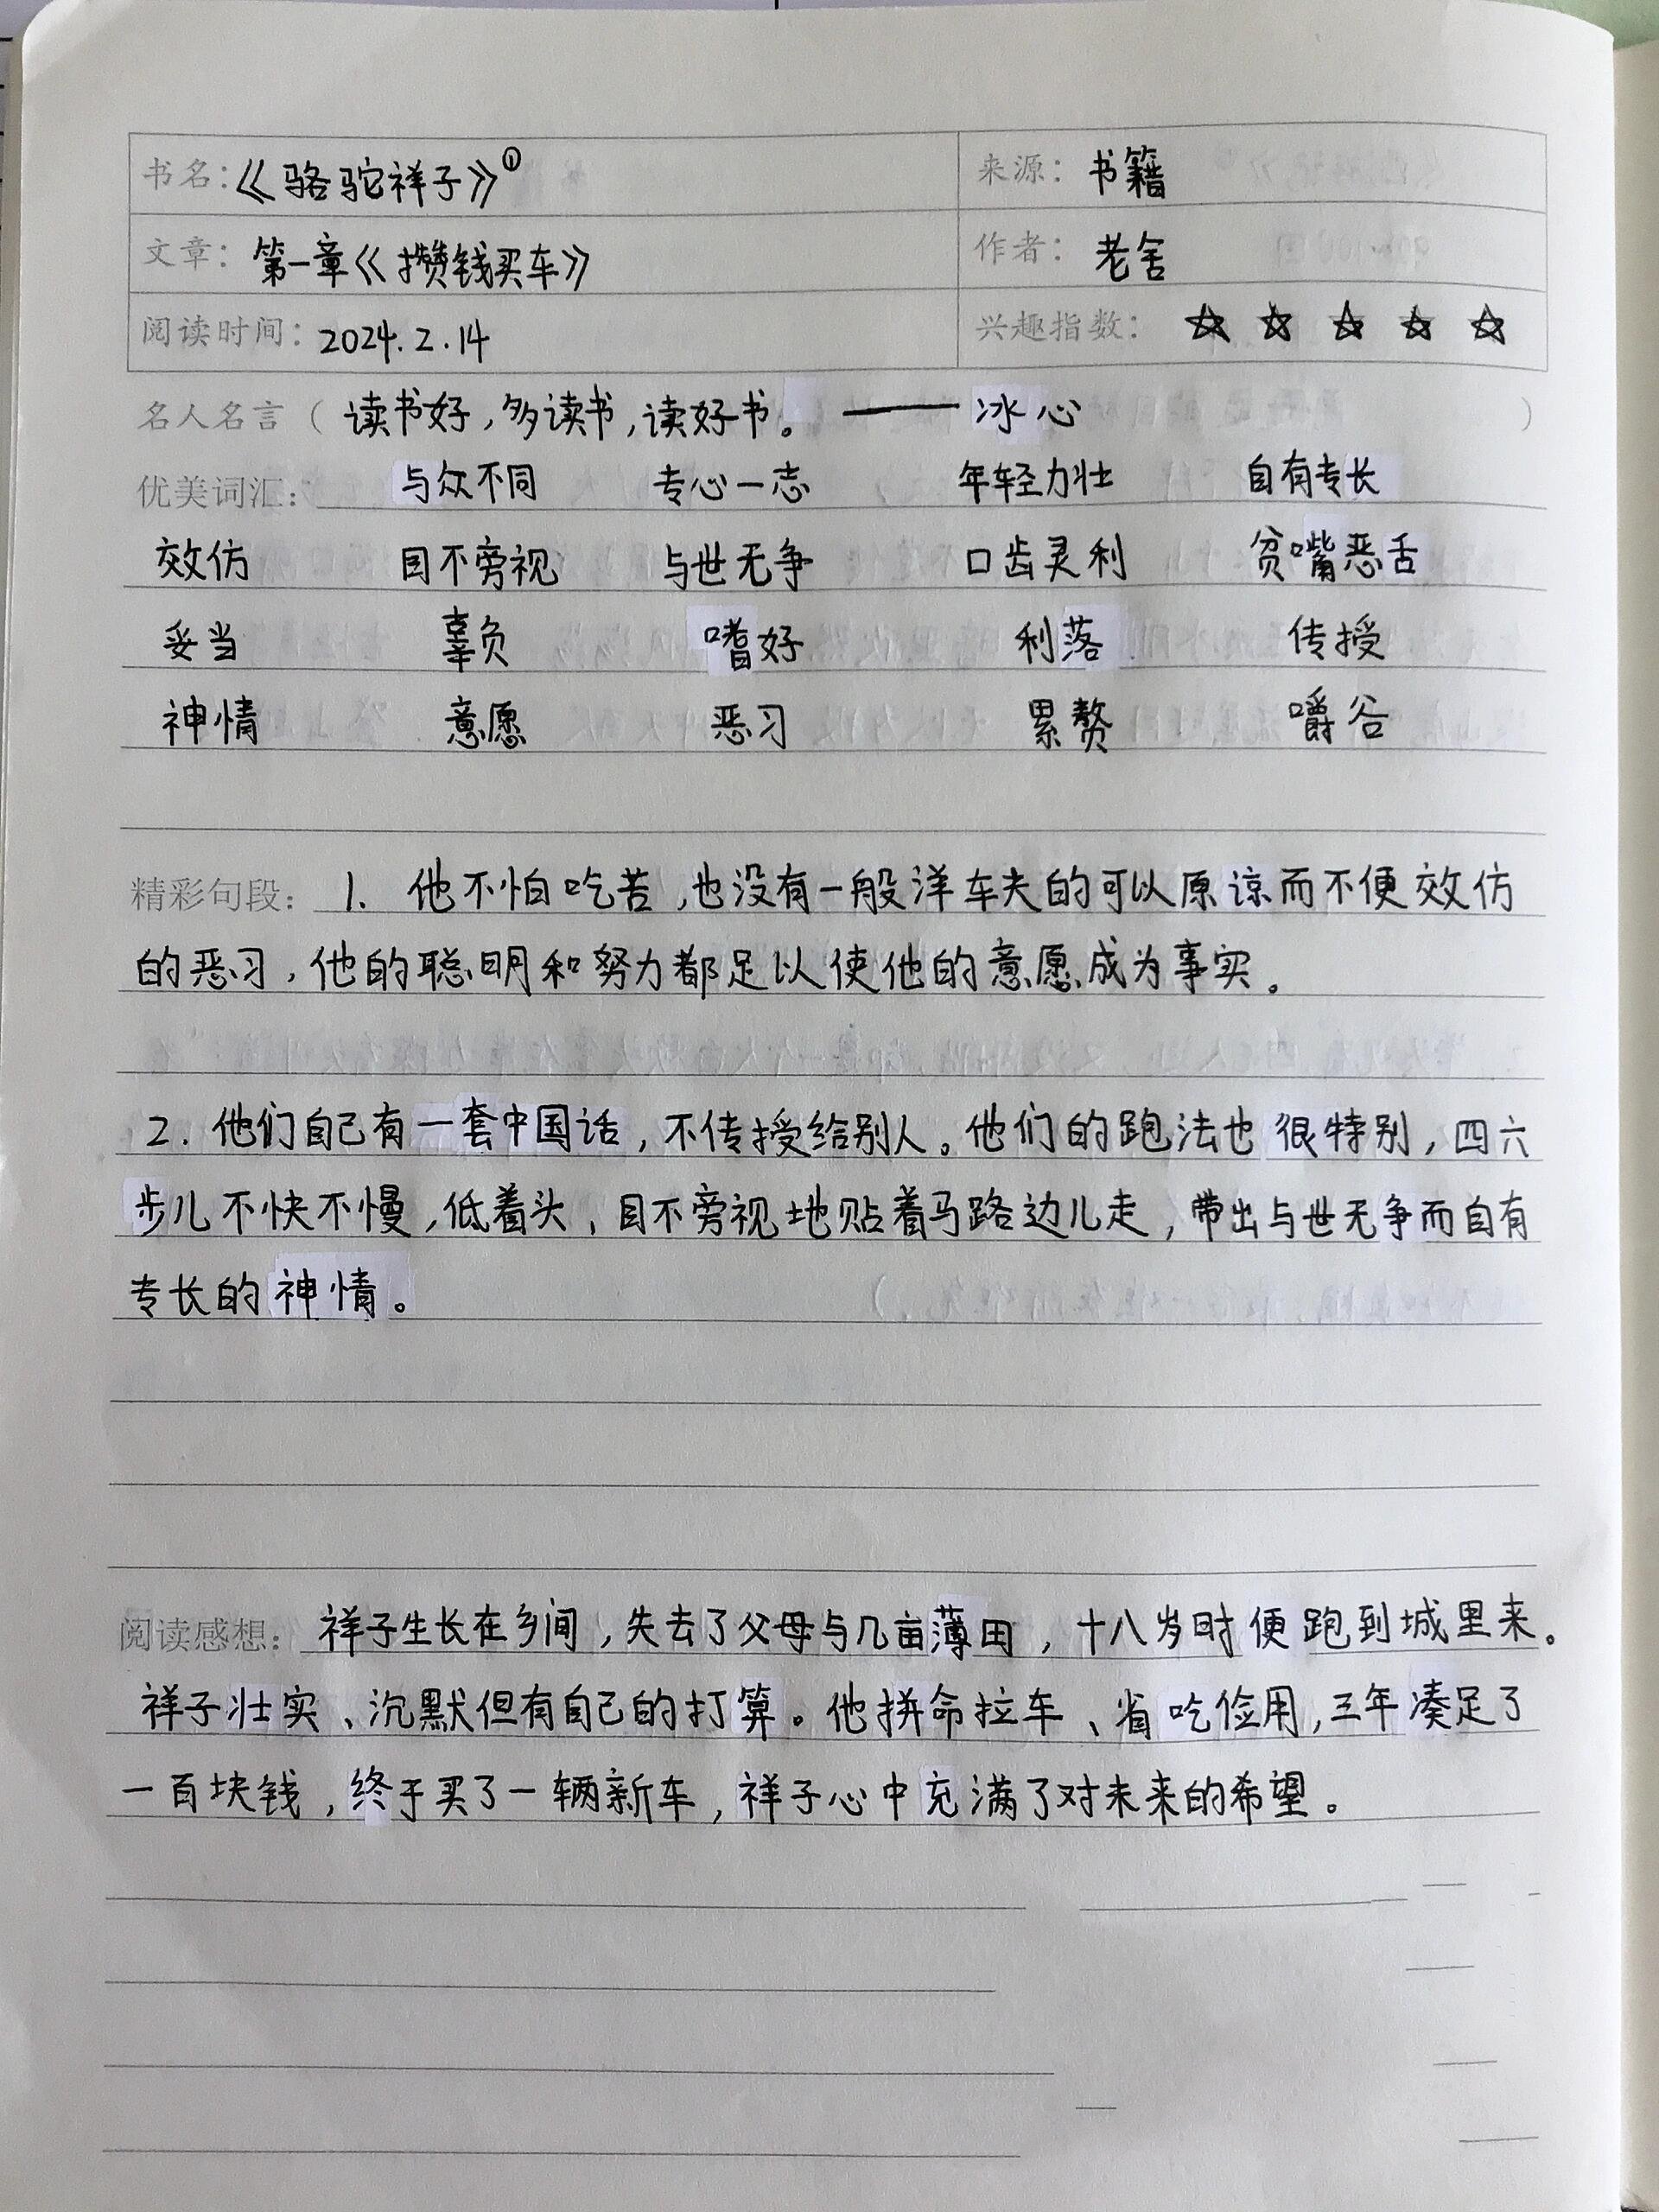 书名：《骆驼祥子》① 来源： 书籍
文章： 第一章《攒钱买车》 作者： 老舍
阅读时间： 2024.2.14 兴趣指数： ☆ ☆ ☆ ☆ ☆
名人名言（ 读书好，多读书，读好书。 —— 冰心 ）
优美词汇： 与众不同 专心一志 年轻力壮 自有专长
效仿 目不旁视 与世无争 口齿灵利 贫嘴恶舌
妥当 辜负 嗜好 利落 传授
神情 意愿 恶习 累赘 嚼谷
精彩句段： 1. 他不怕吃苦，也没有一般洋车夫的可以原谅而不便效仿
的恶习，他的聪明和努力都足以使他的意愿成为事实。
2. 他们自己有一套中国话，不传授给别人。他们的跑法也很特别，四六
步儿不快不慢，低着头，目不旁视地贴着马路边儿走，带出与世无争而自有
专长的神情。
阅读感想： 祥子生长在乡间，失去了父母与几亩薄田，十八岁时便跑到城里来。
祥子壮实、沉默但有自己的打算。他拼命拉车、省吃俭用，三年凑足了
一百块钱，终于买了一辆新车，祥子心中充满了对未来的希望。